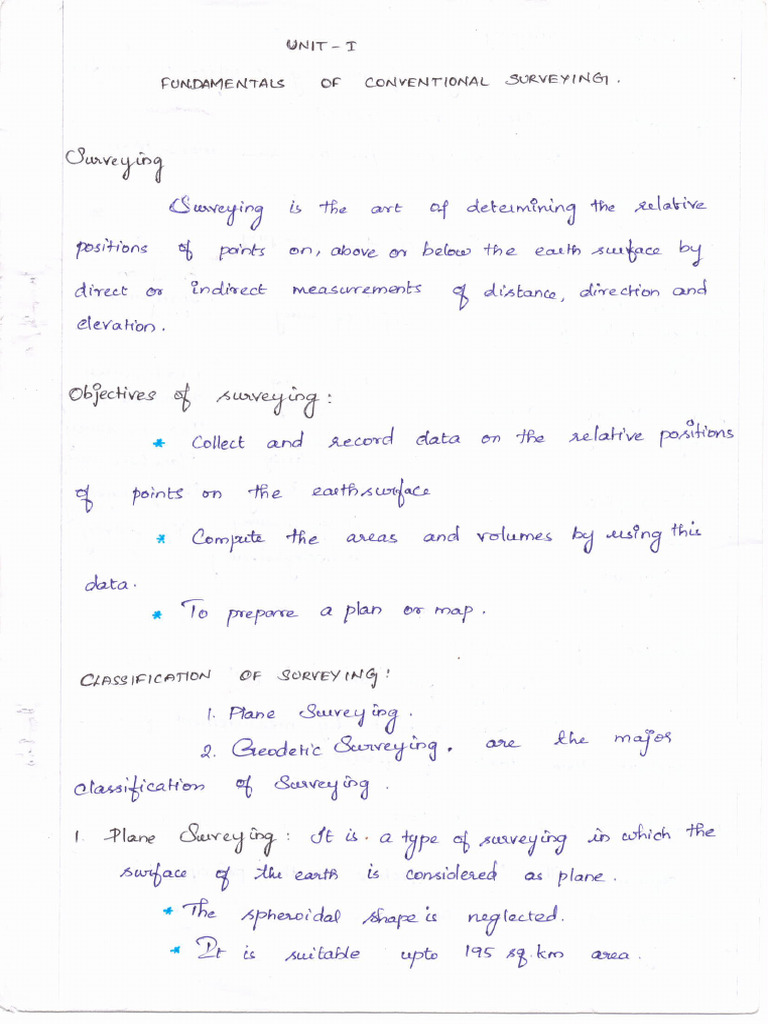 UNIT - I
FUNDAMENTALS OF CONVENTIONAL SURVEYING.
Surveying
Surveying is the art of determining the relative
positions of points on, above or below the earth surface by
direct or indirect measurements of distance, direction and
elevation.
Objectives of surveying:
* Collect and record data on the relative positions
of points on the earth surface
* Compute the areas and volumes by using this
data.
* To prepare a plan or map.
CLASSIFICATION OF SURVEYING:
1. Plane Surveying.
2. Geodetic Surveying. are the major
classification of Surveying.
1. Plane Surveying: It is. a type of surveying in which the
surface of the earth is considered as plane.
* The spheroidal shape is neglected.
* It is suitable upto 195 sq.km area.